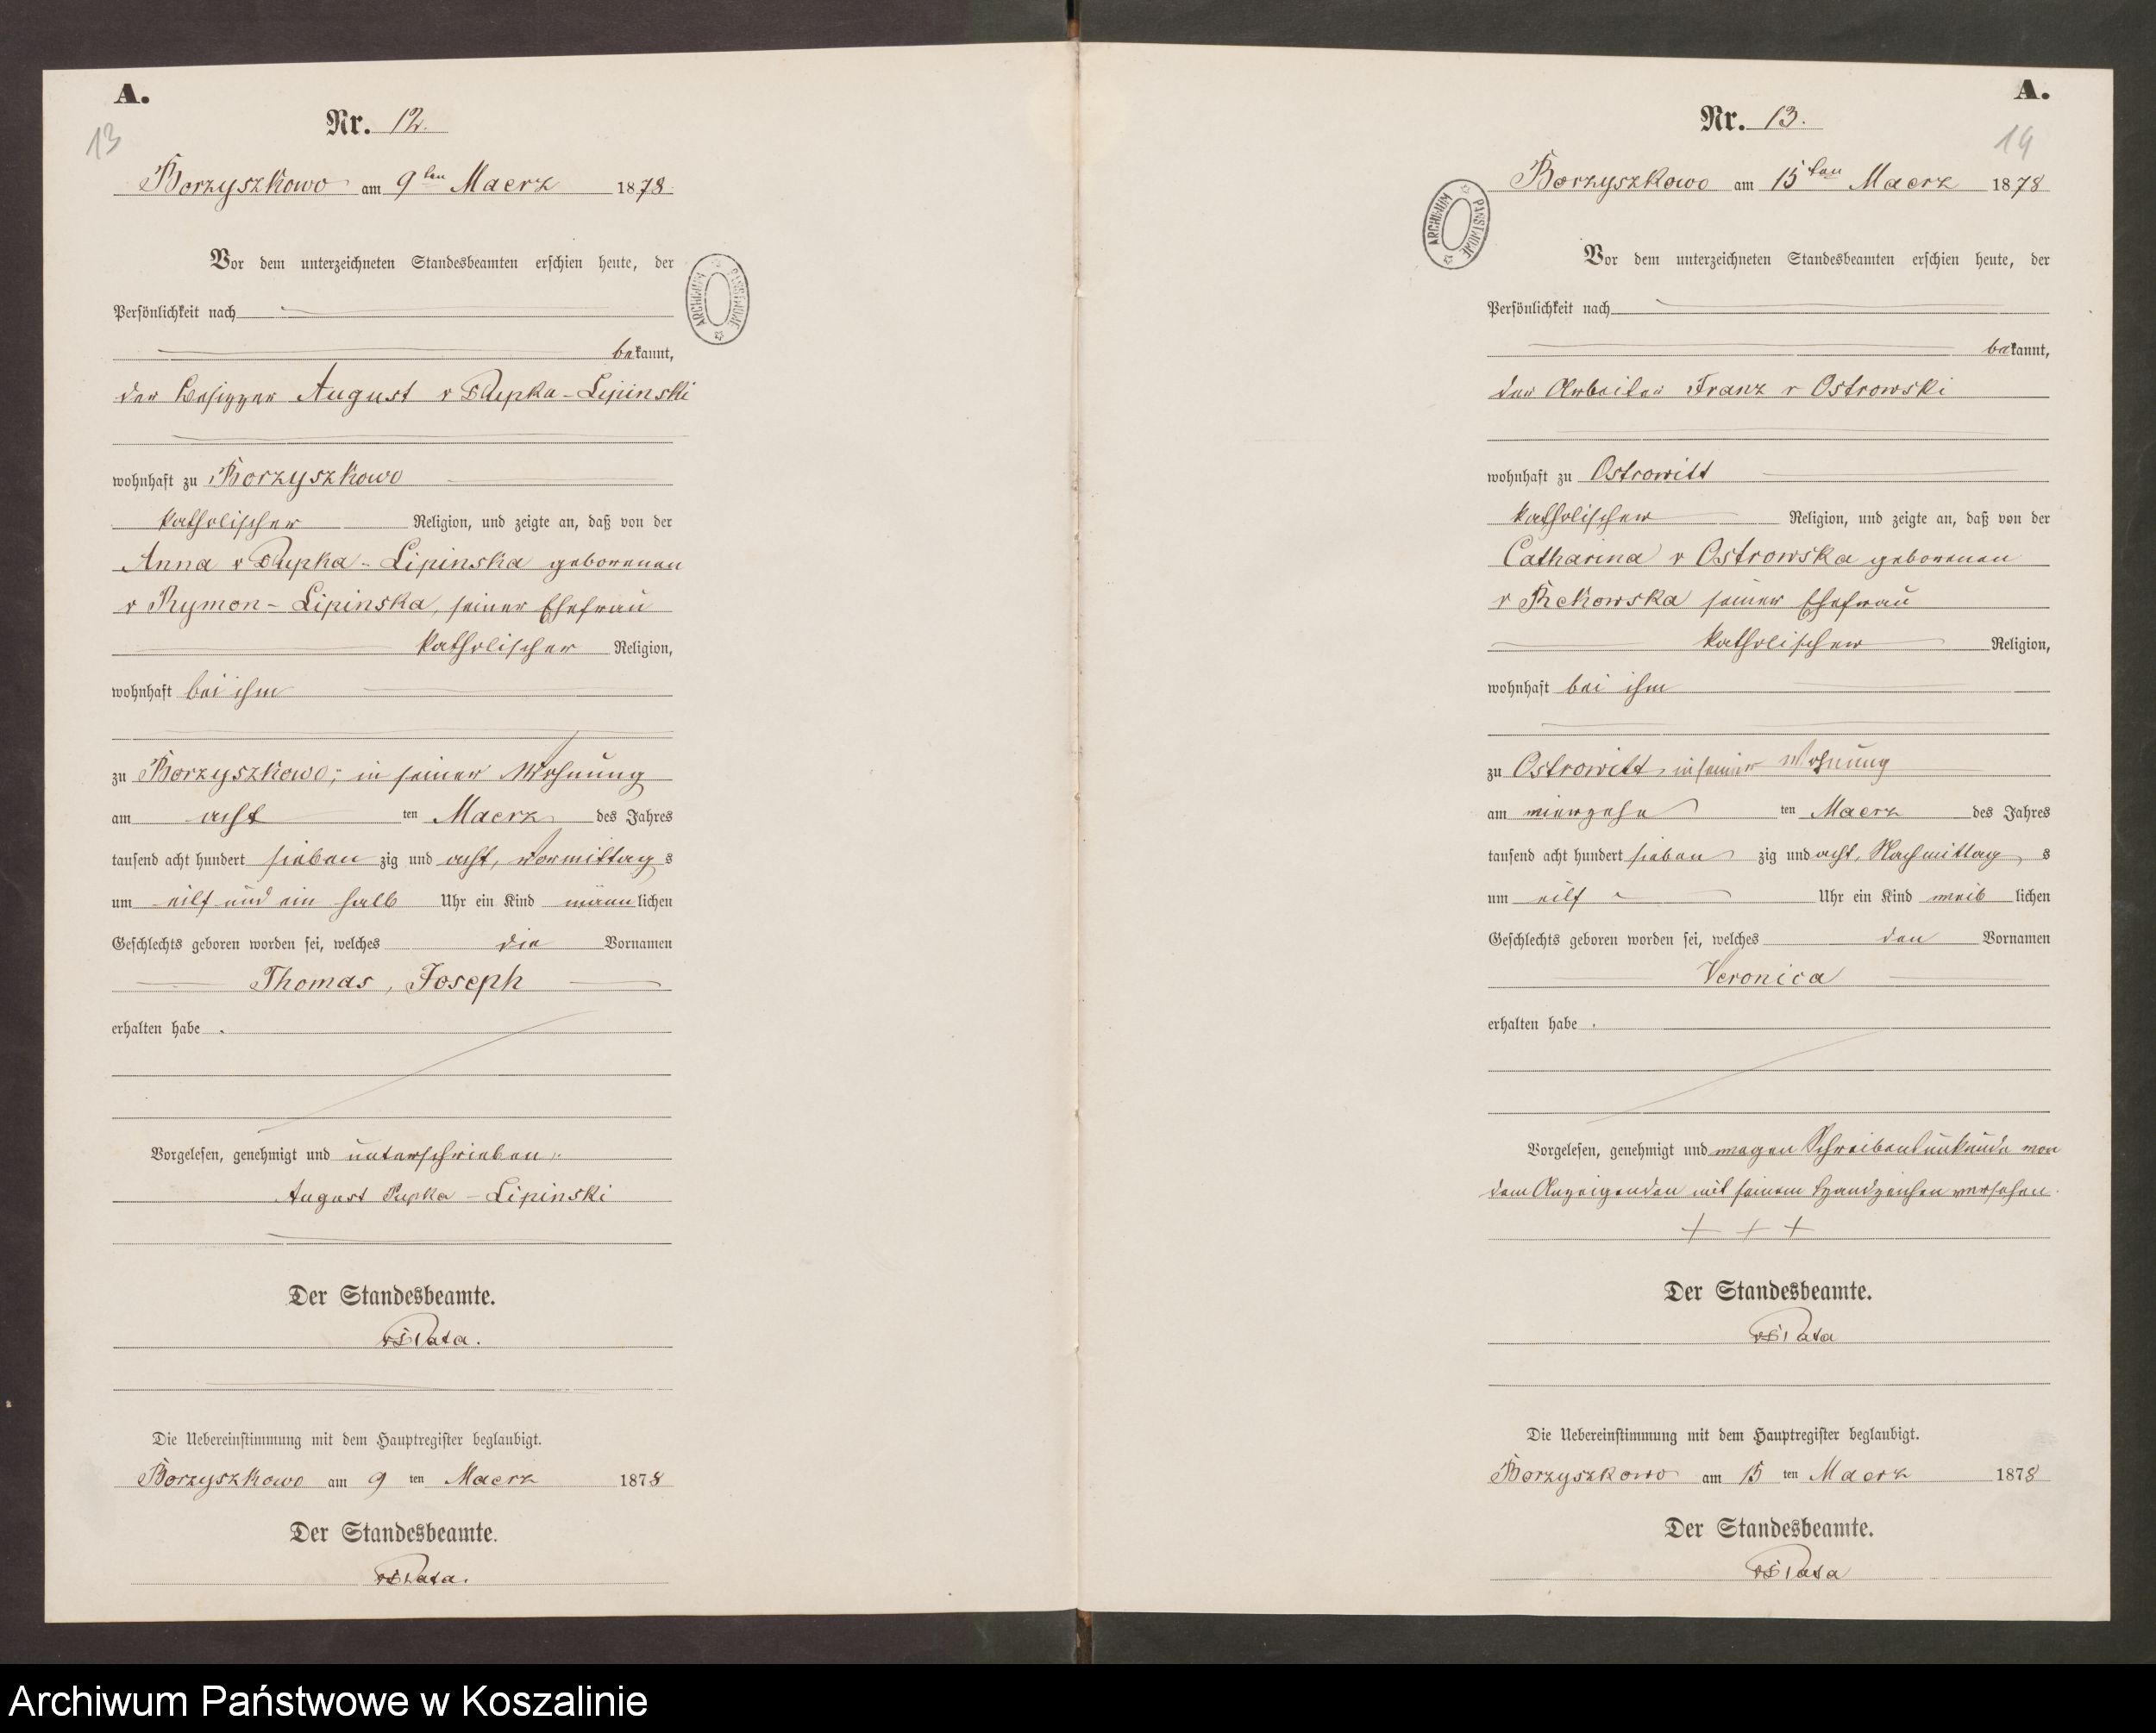 A.
13
Nr. 12.
Borzyszkowo am 9ten Maerz 1878.
Vor dem unterzeichneten Standesbeamten erschien heute, der
Persönlichkeit nach
bekannt,
der Besitzer August v Pupka-Lipinski
wohnhaft zu Borzyszkowo
katholischer Religion, und zeigte an, daß von der
Anna v Pupka-Lipinska geborenen
v Rymon-Lipinska, seiner Ehefrau
katholischer Religion,
wohnhaft bei ihm
zu Borzyszkowo, in seiner Wohnung
am acht ten Maerz des Jahres
tausend acht hundert sieben zig und acht, Vormittag s
um eilf und ein halb Uhr ein Kind männ lichen
Geschlechts geboren worden sei, welches die Vornamen
Thomas, Joseph
erhalten habe .
Vorgelesen, genehmigt und unterschrieben.
August Pupka-Lipinski
Der Standesbeamte.
Die Uebereinstimmung mit dem Hauptregister beglaubigt.
Borzyszkowo am 9 ten Maerz 1878
Der Standesbeamte.
A.
14
Nr. 13.
Borzyszkowo am 15ten Maerz 1878
ARCHIWUM PAŃSTWOWE
Vor dem unterzeichneten Standesbeamten erschien heute, der
Persönlichkeit nach
bekannt,
der Arbeiter Franz v Ostrowski
wohnhaft zu Ostrowitt
katholischer Religion, und zeigte an, daß von der
Catharina v Ostrowska geborenen
v Rekowska seiner Ehefrau
katholischer Religion,
wohnhaft bei ihm
zu Ostrowitt, in seiner Wohnung
am vierzehn ten Maerz des Jahres
tausend acht hundert sieben zig und acht, Nachmittag s
um eilf Uhr ein Kind weib lichen
Geschlechts geboren worden sei, welches den Vornamen
Veronica
erhalten habe .
Vorgelesen, genehmigt und wegen Schreibensunkunde von
dem Anzeigenden mit seinem Handzeichen versehen.
+ + +
Der Standesbeamte.
Die Uebereinstimmung mit dem Hauptregister beglaubigt.
Borzyszkowo am 15 ten Maerz 1878
Der Standesbeamte.
Archiwum Państwowe w Koszalinie